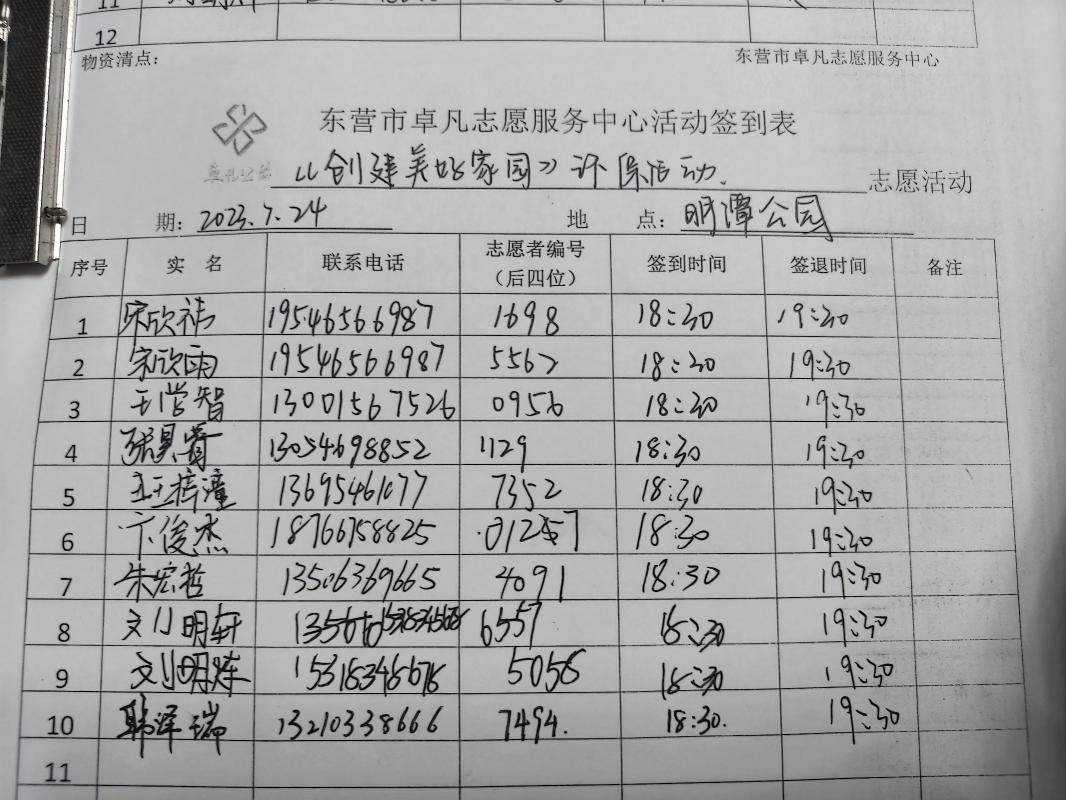 12
物资清点：
东营市卓凡志愿服务中心
东营市卓凡志愿服务中心活动签到表
卓凡公益
《创建美好家园》环保活动. 志愿活动
日 期：2023.7.24 地 点：明潭公园
序号 实 名 联系电话 志愿者编号（后四位） 签到时间 签退时间 备注
1 宋欣祎 19546566987 1698 18:30 19:30
2 宋欣雨 19546566987 5562 18:30 19:30
3 王学智 13001567526 0956 18:30 19:30
4 张昊 13054698852 1129 18:30 19:30
5 王梓潼 13695461077 7352 18:30 19:30
6 卞俊杰 18766758825 18:30 19:30
7 朱宏哲 13506369665 4091 18:30 19:30
8 刘明轩 6557 18:30 19:30
9 刘明炜 5058 18:30 19:30
10 韩泽瑞 13210338666 7494. 18:30. 19:30
11